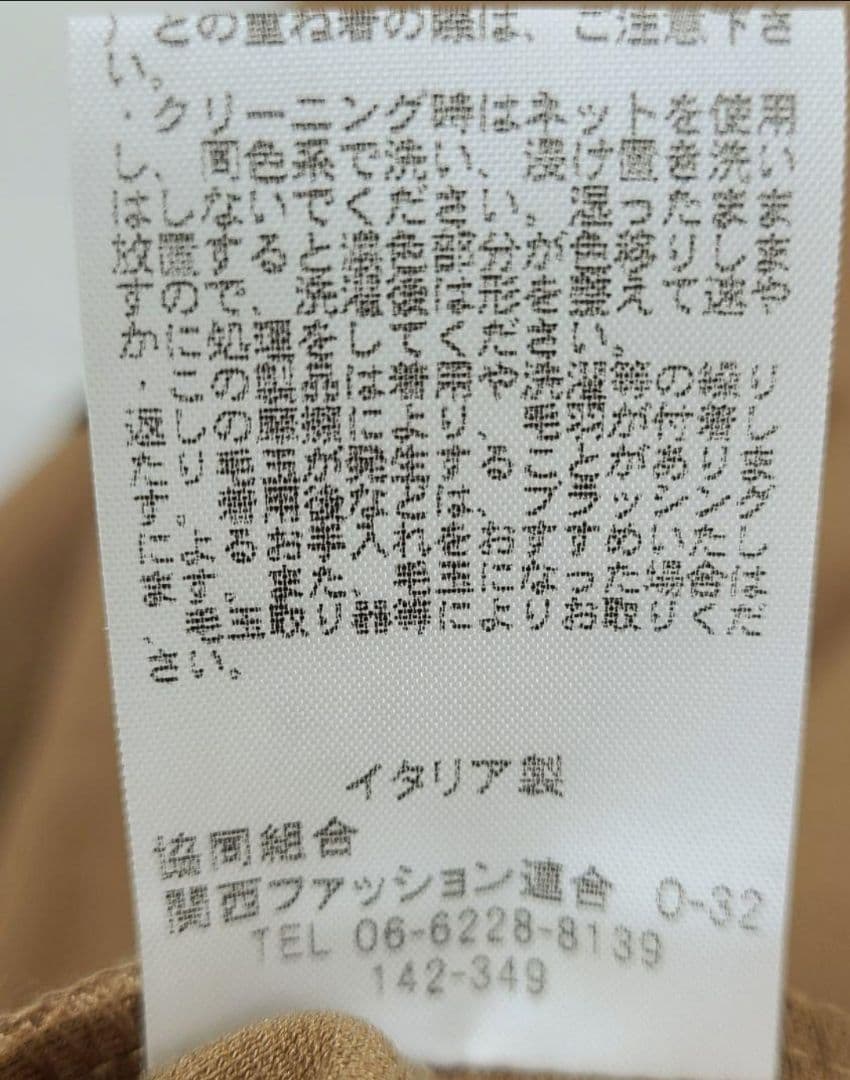 ）との重ね着の際は、ご注意下さ
い。
・クリーニング時はネットを使用
し、同色系で洗い、浸け置き洗い
はしないでください。湿ったまま
放置すると濃色部分が色移りしま
すので、洗濯後は形を整えて速や
かに処理をしてください。
・この製品は着用や洗濯等の繰り
返しの摩擦により、毛羽が付着し
たり毛玉が発生することがありま
す。着用後などは、ブラッシング
によるお手入れをおすすめいたし
ます。また、毛玉になった場合は
、毛玉取り器等によりお取りくだ
さい。
イタリア製
協同組合
関西ファッション連合 O-32
TEL 06-6228-8139
142-349